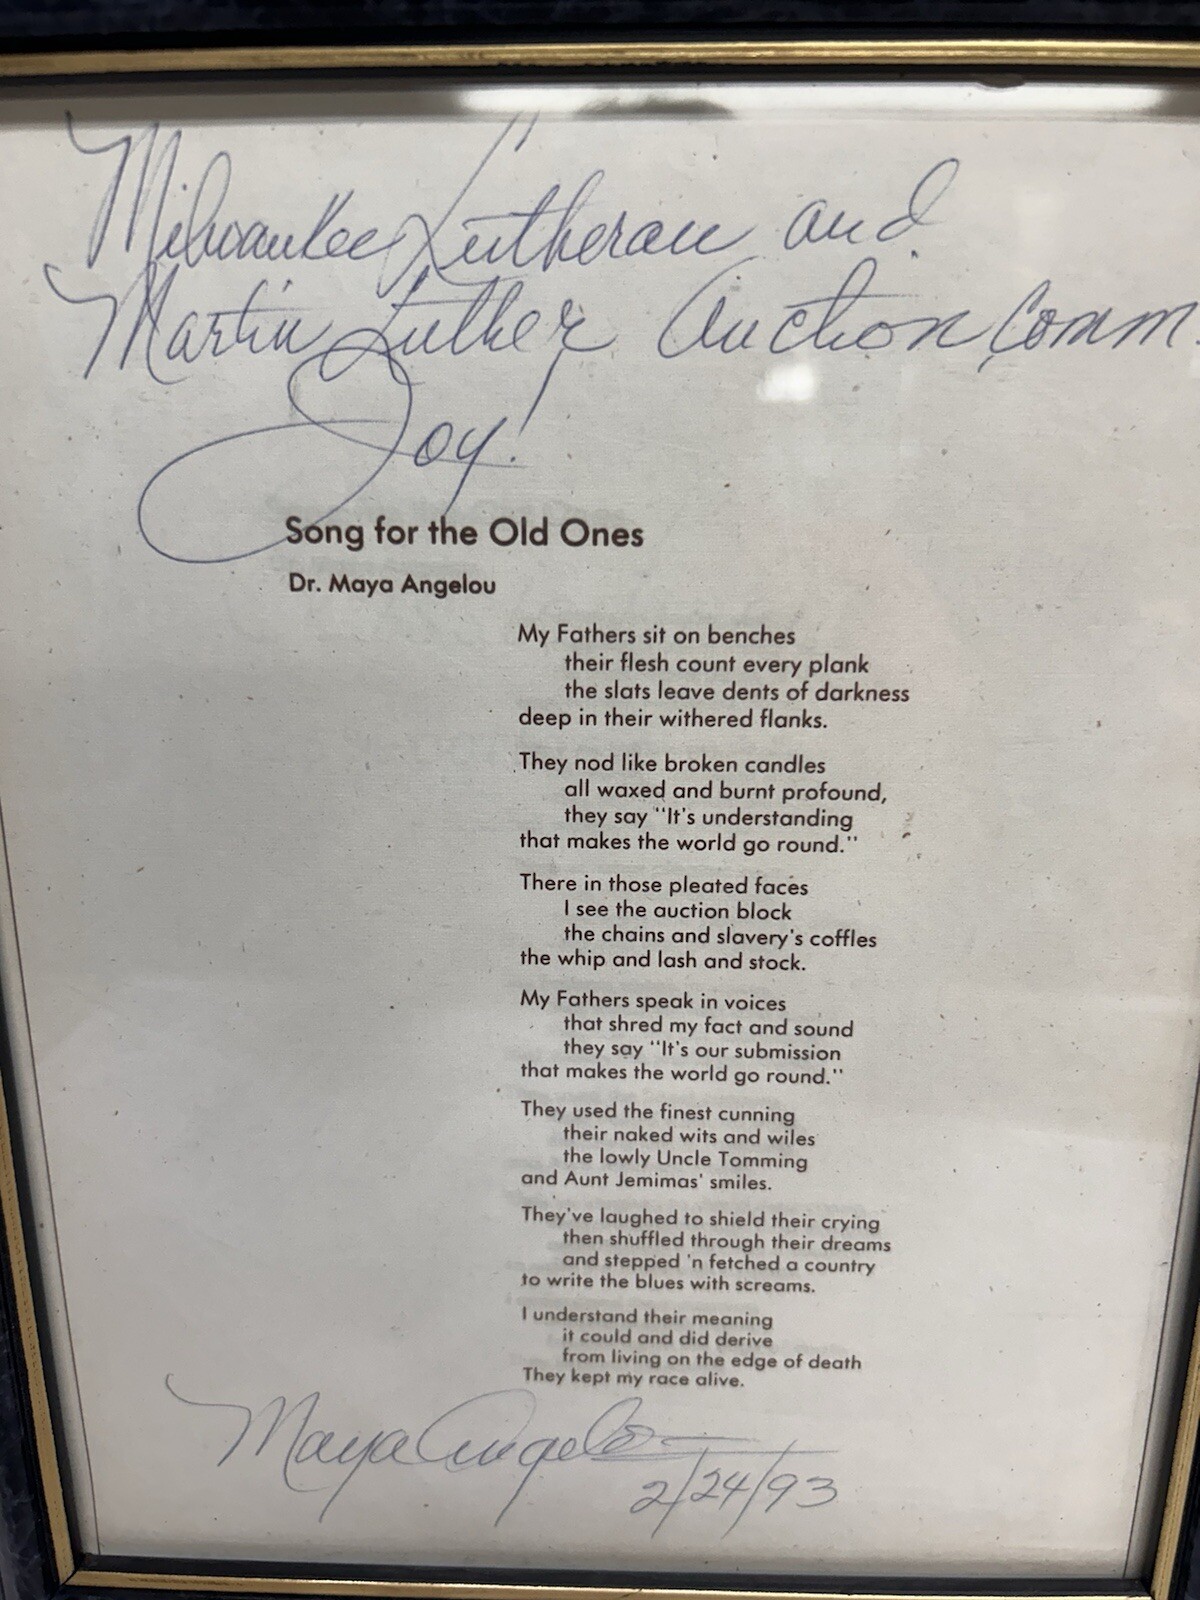 Milwaukee Lutheran and
Martin Luther Auction Comm.
Joy!
Song for the Old Ones
Dr. Maya Angelou
My Fathers sit on benches
their flesh count every plank
the slats leave dents of darkness
deep in their withered flanks.
They nod like broken candles
all waxed and burnt profound,
they say "It's understanding
that makes the world go round."
There in those pleated faces
I see the auction block
the chains and slavery's coffles
the whip and lash and stock.
My Fathers speak in voices
that shred my fact and sound
they say "It's our submission
that makes the world go round."
They used the finest cunning
their naked wits and wiles
the lowly Uncle Tomming
and Aunt Jemimas' smiles.
They've laughed to shield their crying
then shuffled through their dreams
and stepped 'n fetched a country
to write the blues with screams.
I understand their meaning
it could and did derive
from living on the edge of death
They kept my race alive.
Maya Angelou
2/24/93